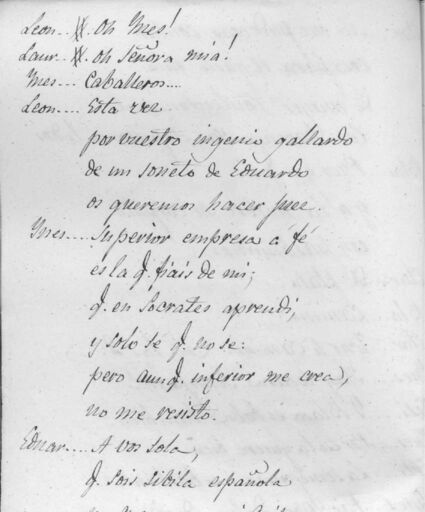 Leon.. Oh Ynes!
Laur.. Oh Señora mia!
Ynes... Caballeros....
Leon.... Esta vez
por vuestro ingenio gallardo
de un soneto de Eduardo
os queremos hacer juez.
Ynes.... Superior empresa á fé
es la q. fiais de mi;
q. en Socrates aprendi,
y solo sé q. no se:
pero aunq. inferior me crea,
no me resisto.
Eduar.... A vos sola,
q. sois sibila española